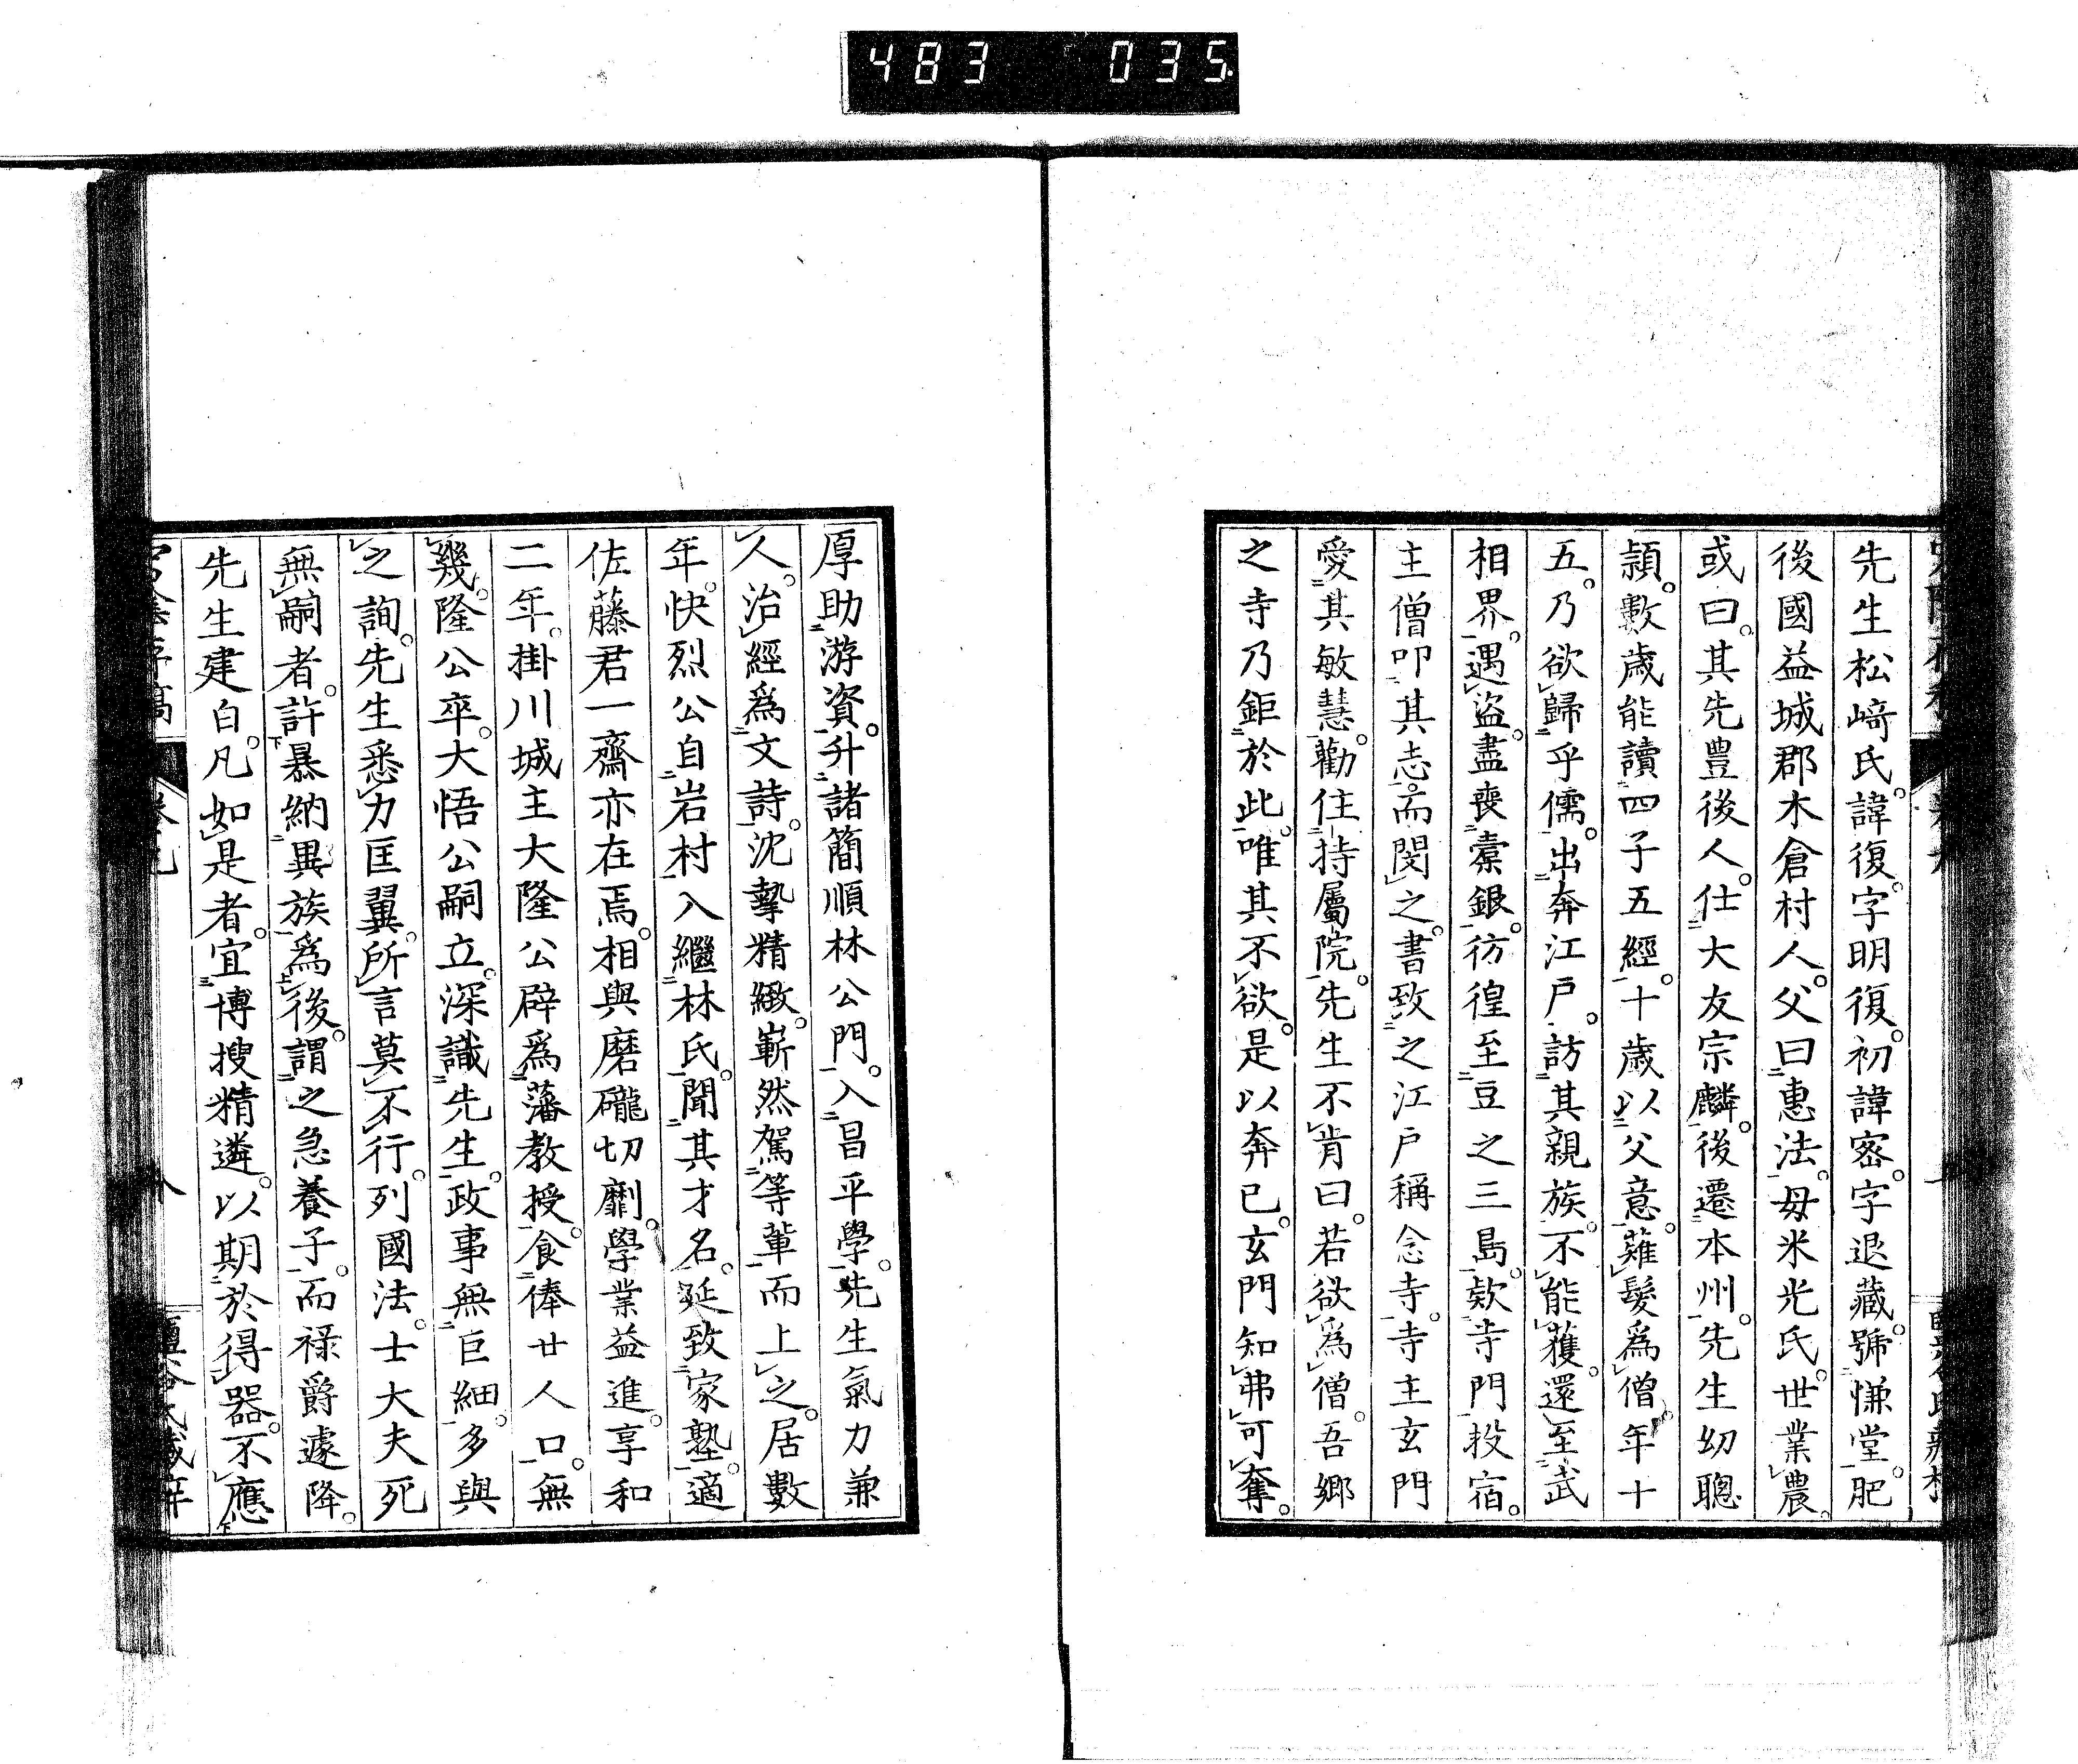 483 035
先生松﨑氏。諱復。字明復。初諱密。字退藏。號慊堂。肥
後國益城郡木倉村人。父曰惠法。母米光氏。世業農。
或曰。其先豊後人。仕大友宗麟。後遷本州。先生幼聰
頴。數歲能讀四子五經。十歲以父意。薙髮爲僧。年十
五。乃欲歸乎儒。出奔江戸。訪其親族。不能獲。還至武
相界。遇盗。盡喪橐銀。彷徨至豆之三島。欵寺門投宿。
主僧叩其志。而閔之。書致之江戸稱念寺。寺主玄門
愛其敏慧。勸住持屬院。先生不肯曰。若欲爲僧。吾郷
之寺乃鉅於此。唯其不欲。是以奔已。玄門知弗可奪。
厚助游資。升諸簡順林公門。入昌平學。先生氣力兼
人。治經爲文詩。沈摯精緻。嶄然駕等輩而上之。居數
年。快烈公自岩村入繼林氏。聞其才名。延致家塾。適
佐藤君一齋亦在焉。相與磨礲切劘。學業益進。享和
二年。掛川城主大隆公辟爲藩教授。食俸廿人口。無
幾。隆公卒。大悟公嗣立。深識先生。政事無巨細。多與
之詢。先生悉力匡翼。所言莫不行。列國法。士大夫死
無嗣者。許暴納異族爲後。謂之急養子。而禄爵遽降。
先生建白。凡如是者。宜博搜精遴。以期於得器。不應
八